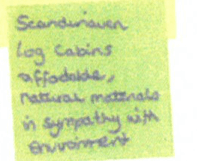 Scandinaven
Log Cabins
affodable,
natural materials
in sympathy with
Environment